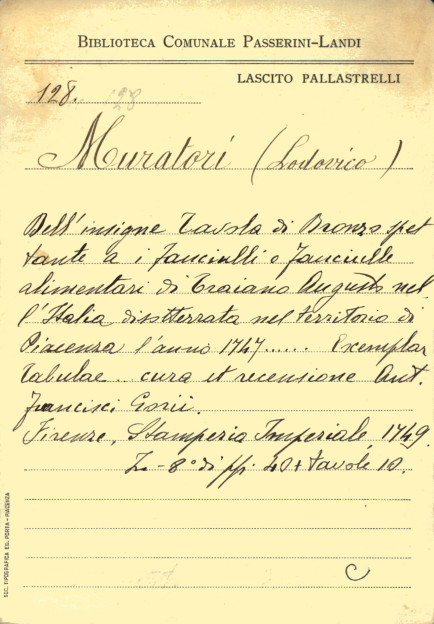 BIBLIOTECA COMUNALE PASSERINI-LANDI
LASCITO PALLASTRELLI
128. 128
Muratori (Lodovico)
Dell'insigne Tavola di Bronzo spet
tante a i fanciulli e fanciulle
alimentari di Traiano Augusto nel
l'Italia disotterrata nel territorio di
Piacenza l'anno 1747..... Exemplar
Tabulae.. cura et recensione Ant.
Francisci Gorii.
Firenze, Stamperia Imperiale, 1749.
8° di pp. 40 + tavole 10.
C
SOC. TIPOGRAFICA ED. PORTA - PIACENZA